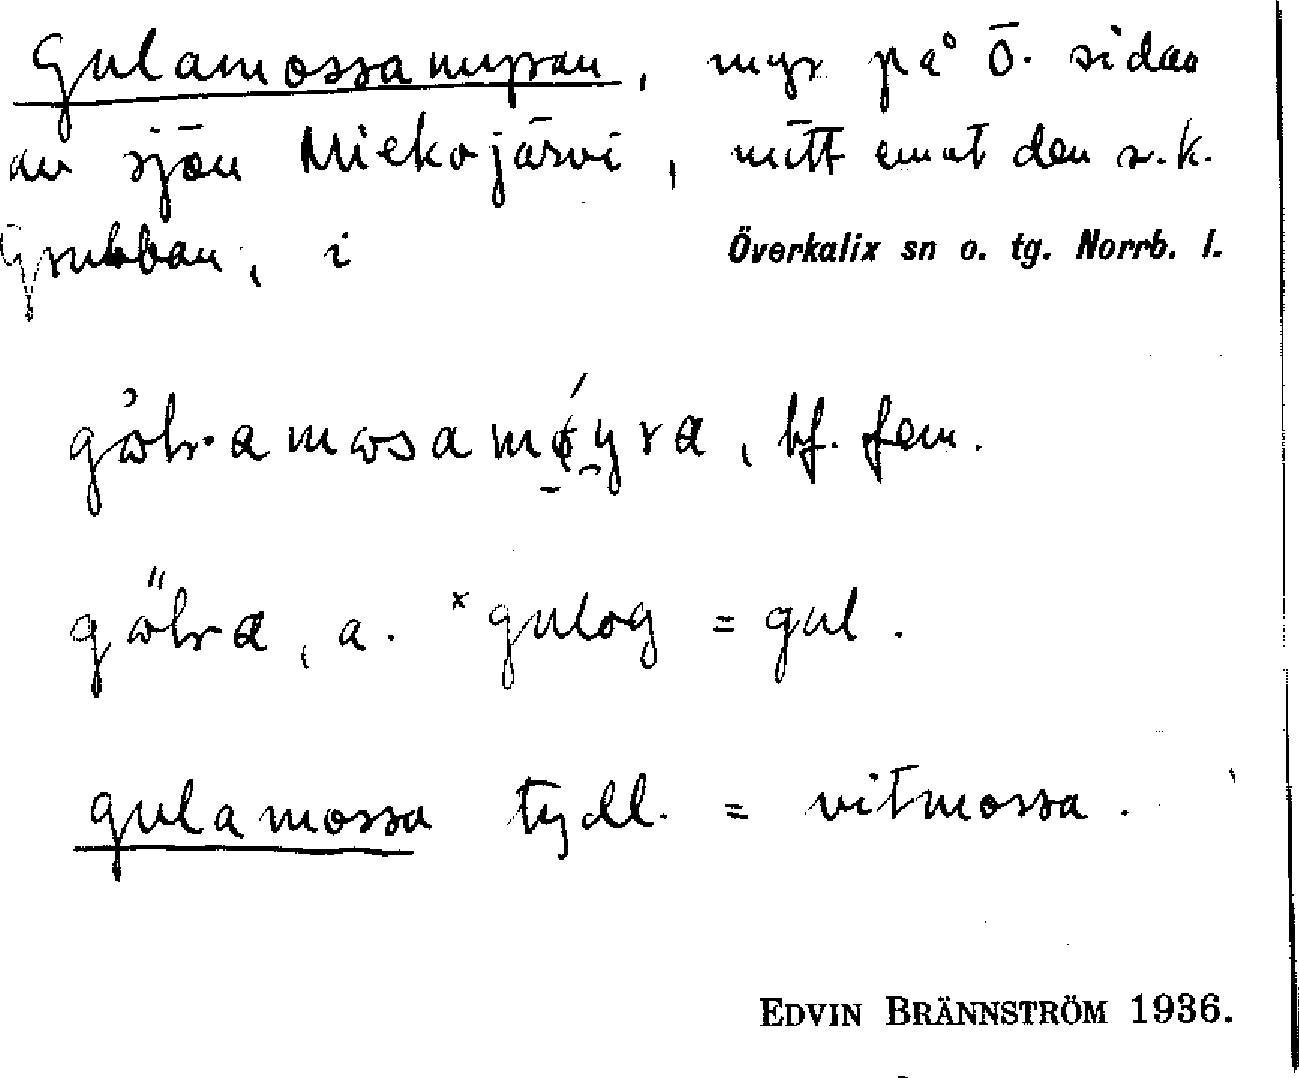 Gulamossamyran, myr på ö. sidan
av sjön Miekojärvi, mitt emot den s.k.
Grubban, i Överkalix sn o. tg. Norrb. l.
bf. fem.
a. ˣgulog = gul.
gulamossa tydl. = vitmossa.
EDVIN BRÄNNSTRÖM 1936.